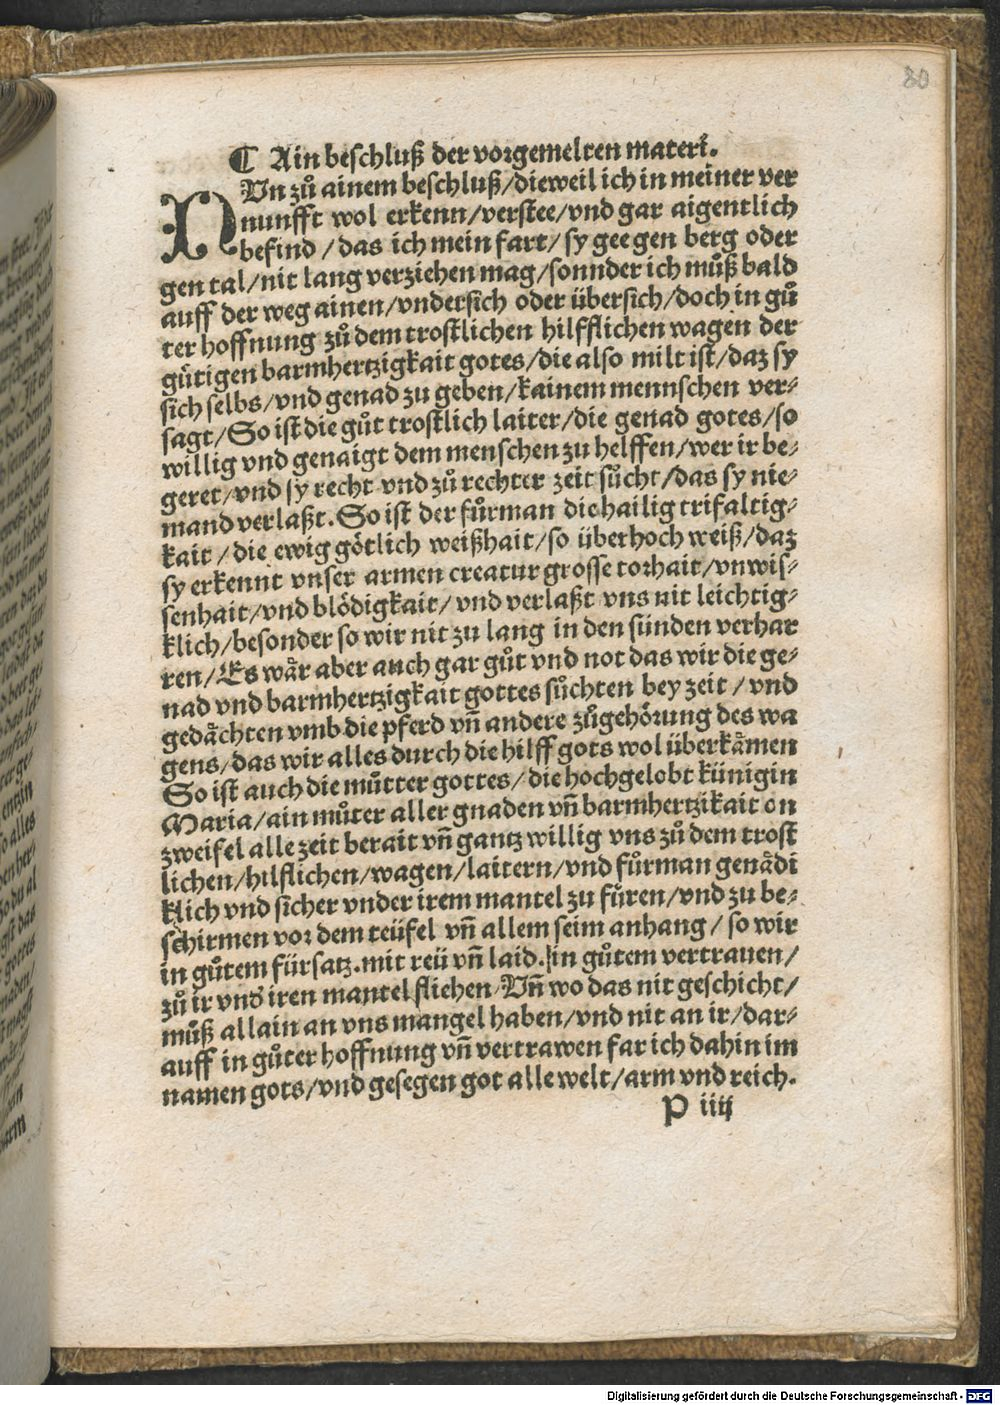 80
⸿ Ain beschluß der vorgemelten materi.
NUn zuͦ ainem beschluß/dieweil ich in meiner ver
nunfft wol erkenn/verstee/vnd gar aigentlich
befind/das ich mein fart/sy gee gen berg oder
gen tal/nit lang verziehen mag/sonnder ich muͦß bald
auff der weg ainen/vndersich oder übersich/doch in guͦ
ter hoffnung zuͦ dem trostlichen hilfflichen wagen der
guͤtigen barmhertzigkait gotes/die also milt ist/daz sy
sich selbs/vnd genad zu geben/kainem mennschen ver-
sagt/So ist die guͦt trostlich laiter/die genad gotes/so
willig vnd genaigt dem menschen zu helffen/wer ir be-
geret/vnd sy recht vnd zuͦ rechter zeit suͦcht/das sy nie-
mand verlaßt. So ist der fuͦrman die hailig trifaltig-
kait/die ewig goͤtlich weißhait/so überhoch weiß/daz
sy erkennt vnser armen creatur grosse torhait/vnwis-
senhait/vnd bloͤdigkait/vnd verlaßt vns nit leichtig-
klich/besonder so wir nit zu lang in den sünden verhar
ren/Es waͤr aber auch gar guͦt vnd not das wir die ge-
nad vnd barmhertzigkait gottes suͦchten bey zeit/vnd
gedaͤchten vmb die pferd vñ andere zuͦgehoͤrung des wa
gens/das wir alles durch die hilff gots wol überkaͤmen
So ist auch die muͦtter gottes/die hochgelobt künigin
Maria/ain muͦter aller gnaden vñ barmhertzikait on
zweifel alle zeit berait vñ gantz willig vns zuͦ dem trost
lichen/hilflichen/wagen/laitern/vnd fuͦrman genaͤdi
klich vnd sicher vnder irem mantel zu fuͤren/vnd zu be-
schirmen vor dem teüfel vñ allem seim anhang/so wir
in guͦtem fürsatz. mit reü vñ laid. in guͦtem vertrauen/
zuͦ ir vnd iren mantel fliehen/Vñ wo das nit geschicht/
muͦß allain an vns mangel haben/vnd nit an ir/dar-
auff in guͦter hoffnung vñ vertrawen far ich dahin im
namen gots/vnd gesegen got alle welt/arm vnd reich.
P iiij
Digitalisierung gefördert durch die Deutsche Forschungsgemeinschaft - DFG